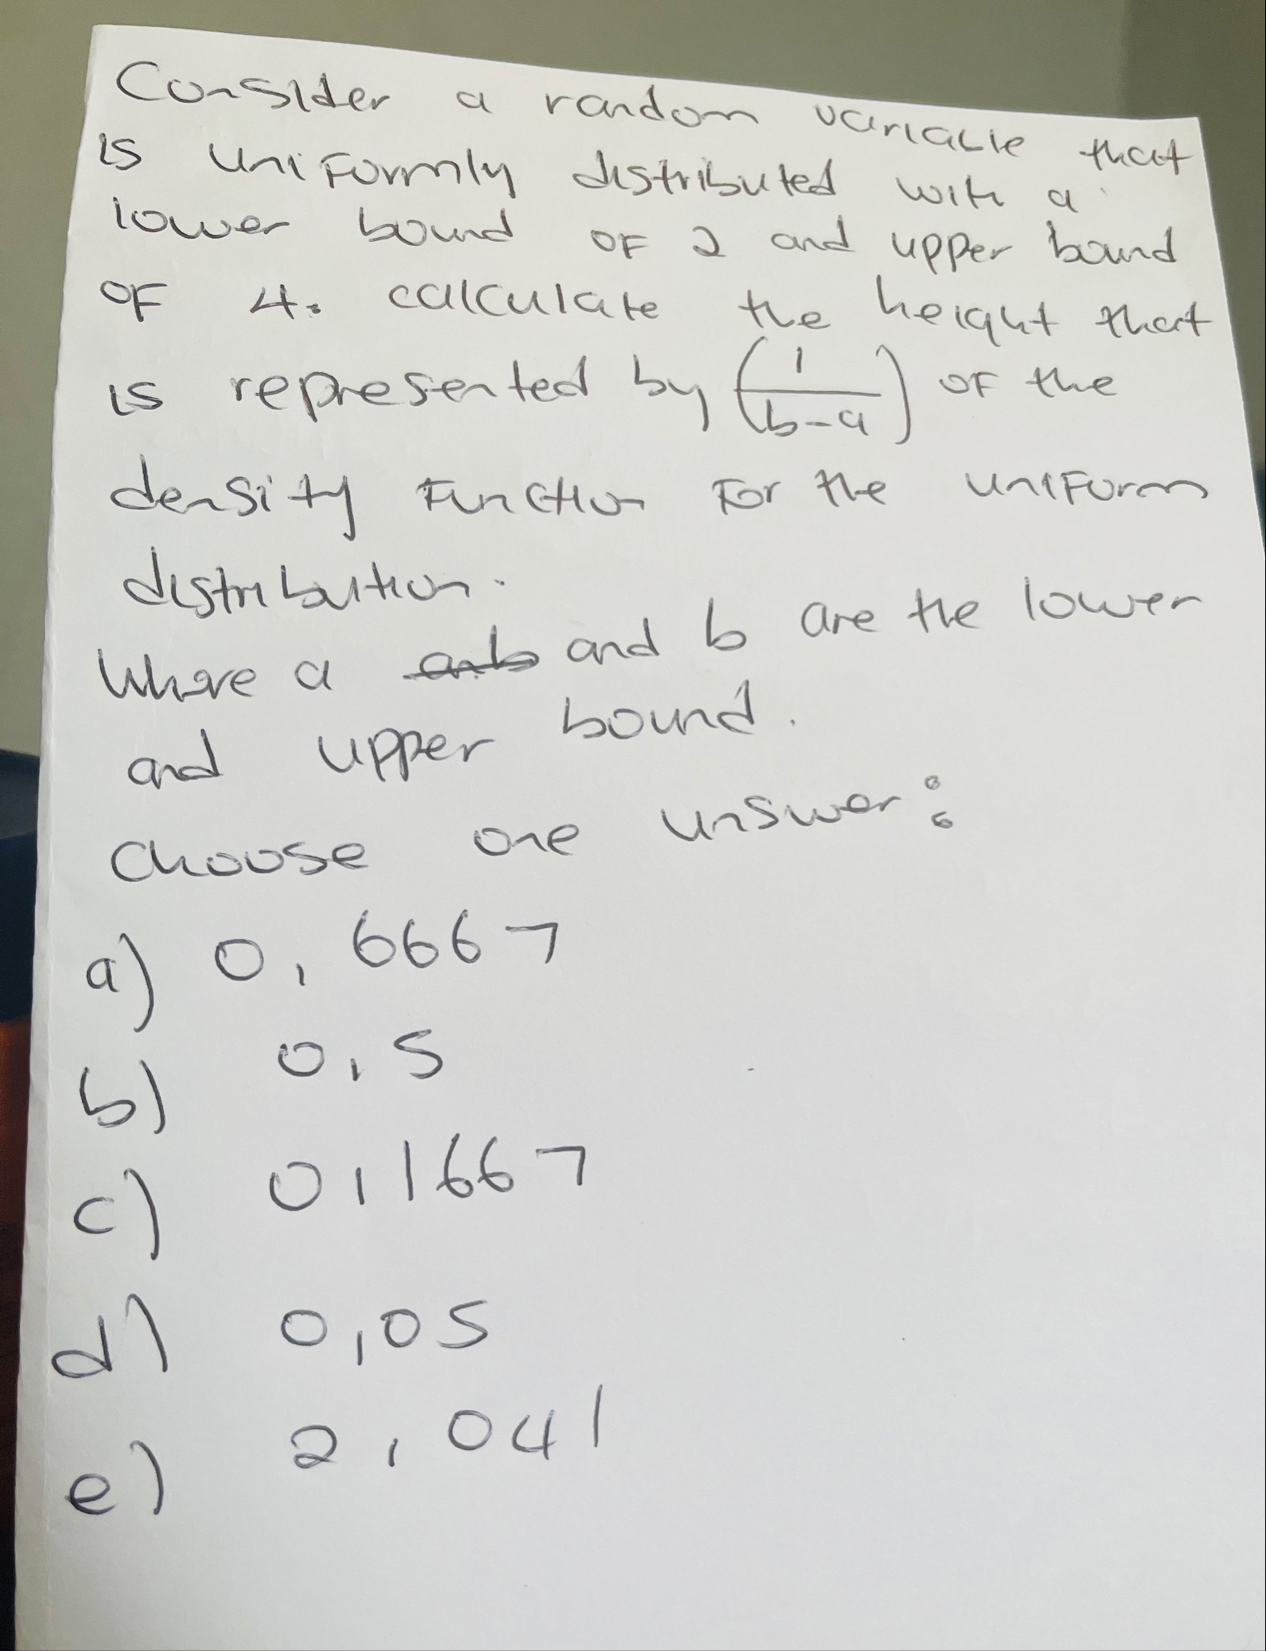 Consider a random variable that
is uniformly distributed with a
lower bound of 2 and upper bound
of 4. calculate the height that
is represented by (1/(b-a)) of the
density function for the uniform
distribution.
Where a and b are the lower
and upper bound.
choose one unswer:
a) 0,6667
b) 0,5
c) 0,1667
d) 0,05
e) 2,041